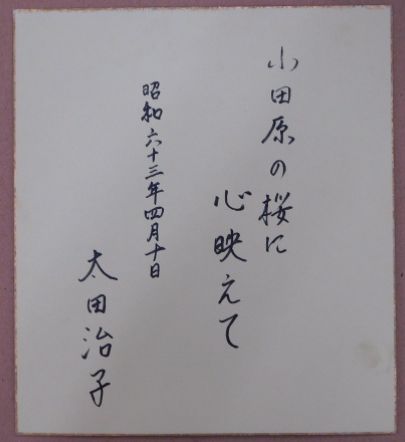 小田原の桜に
心映えて
昭和六十三年四月十日
太田治子